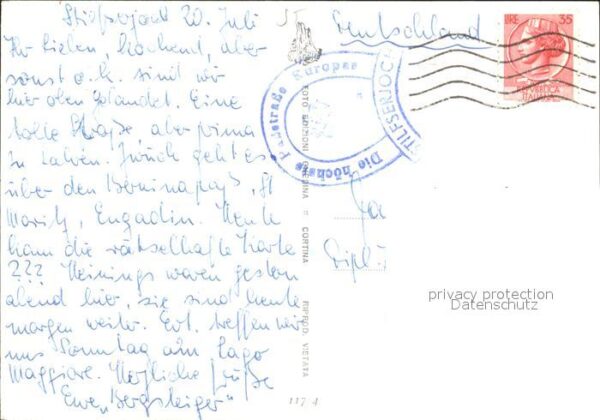 Stilfserjoch 20. Juli
Ihr Lieben, kochend, aber
sonst o.k. sind wir
hier oben gelandet. Eine
tolle Straße aber prima
zu fahren. Zurück geht es
über den Berninapaß, St.
Moritz, Engadin. Heute
kam die rätselhafte Karte
??? Meinings waren gestern
abend hier, sie sind heute
morgen weiter. Evt. treffen wir
uns Sonntag am Lago
Maggiore. Herzliche Grüße
Eure „Bergsteiger"
FOTO EDIZIONI GHEDINA - CORTINA RIPROD. VIETATA
117 4
Deutschland
LIRE 35
REPVBBLICA
ITALIANA
Die höchste Paßstraße Europas
STILFSERJOCH
2757
Dipl.
privacy protection
Datenschutz